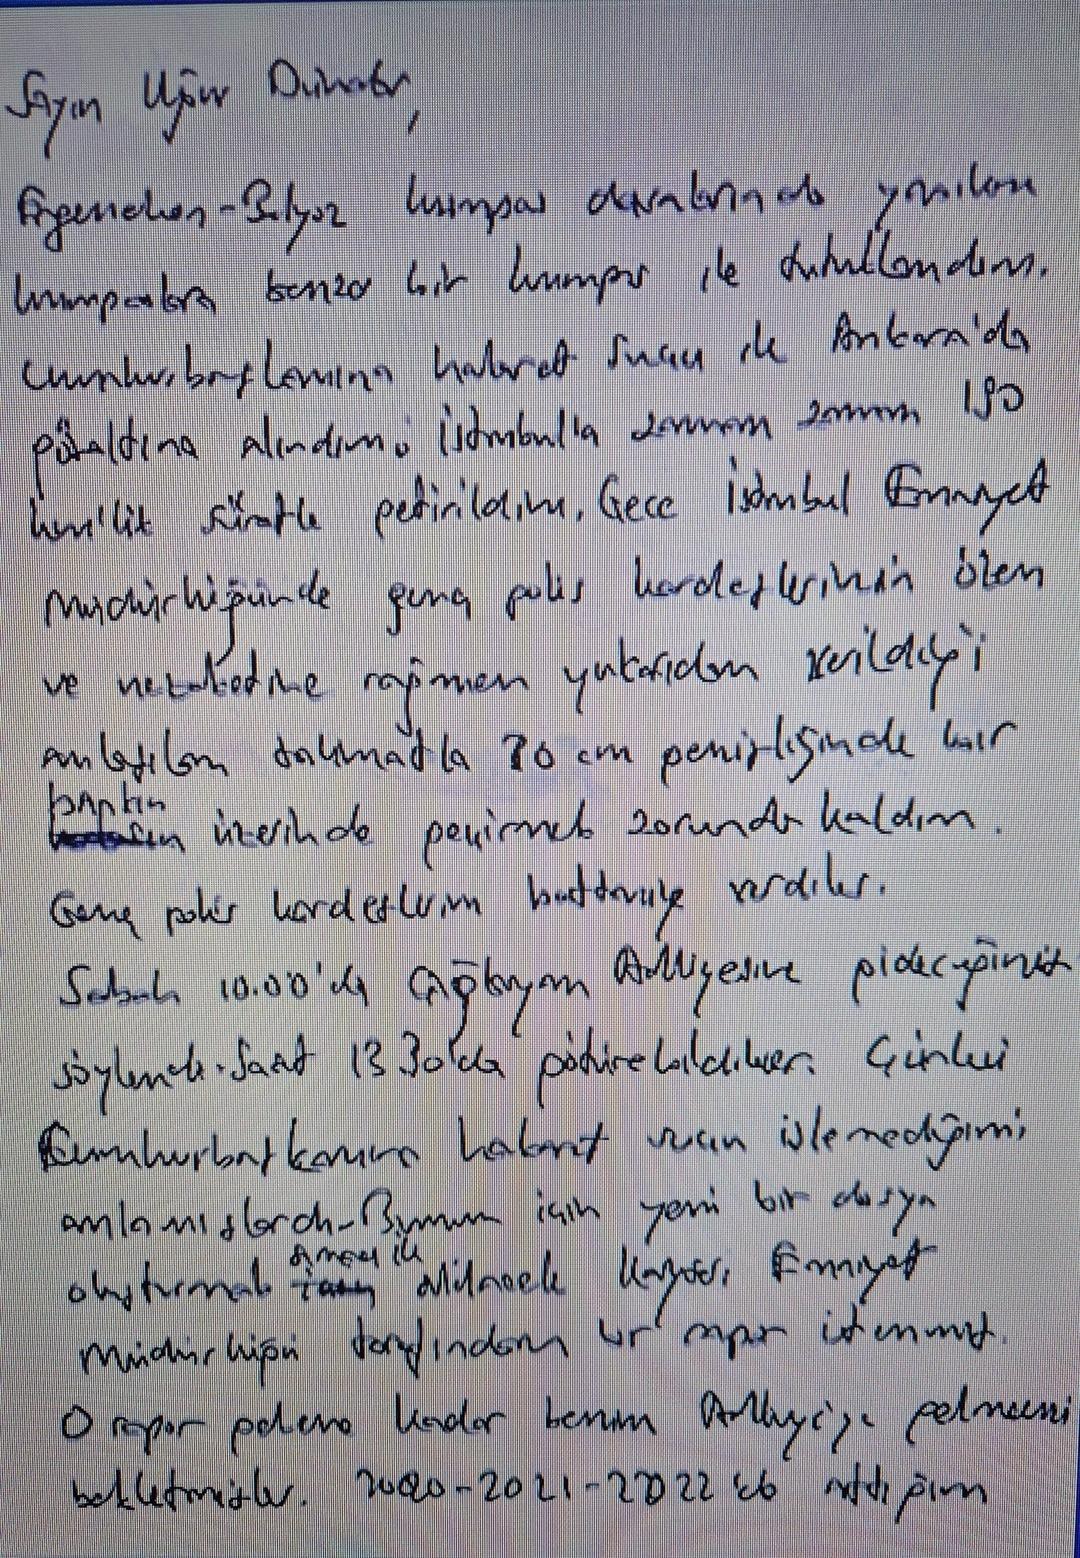 Sayın Uğur Dündar,
Ergenekon-Balyoz kumpas davalarında yapılan
kumpaslara benzer bir kumpas ile tutuklandım.
Cumhurbaşkanına hakaret suçu ile Ankara'da
gözaltına alındım, İstanbul'a zaman zaman 190
km'lik süratle getirildim. Gece İstanbul Emniyet
Müdürlüğünde genç polis kardeşlerimin özen
ve nezaketine rağmen yukarıdan verildiği
anlaşılan talimatla 70 cm genişliğinde bir
bankın üzerinde geçirmek zorunda kaldım.
Genç polis kardeşlerim battaniye verdiler.
Sabah 10.00'da Çağlayan Adliyesine gideceğimiz
söylendi. Saat 13 30'da götürebildiler. Çünkü
Cumhurbaşkanına hakaret suçu işlemediğimi
anlamışlardı. Bunun için yeni bir dosya
oluşturmak amacı ile Kayseri Emniyet
Müdürlüğü tarafından bir rapor istenmiş.
O rapor gelene kadar benim Adliyeye gelmemi
bekletmişler. 2020-2021-2022 de attığım